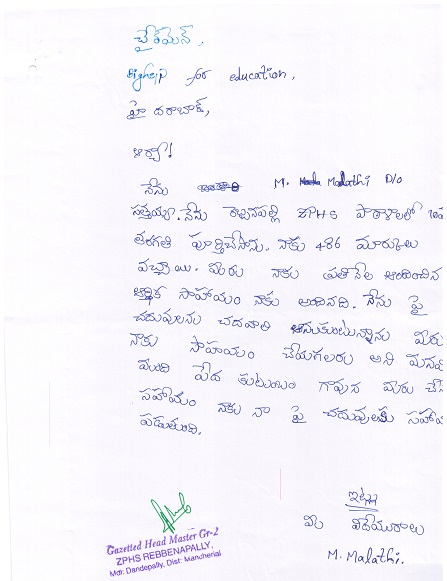 చైర్మెన్,
for education,
హైదరాబాద్,
ఆర్యా!
నేను M. Malathi D/o
సత్తయ్య. నేను ZPHS పాఠశాలలో
తరగతి పూర్తిచేసాను. నాకు 486 మార్కులు
వచ్చాయి. మీరు నాకు ప్రతినెల అందించిన
ఆర్థిక సాహాయం నాకు అందినది. నేను పై
చదువులను చదవాలి అనుకుంటున్నాను మీరు
నాకు సాహాయం చేయగలరు అని
మాది పేద కుటుంబం గావున మీరు
సహాయం నాకు నా పై చదువులకు
పడుతుంది.
ఇట్లు
మీ విధేయురాలు
M. Malathi.
Gazetted Head Master Gr-2
ZPHS REBBENAPALLY,
Mdl: Dandepally, Dist: Mancherial